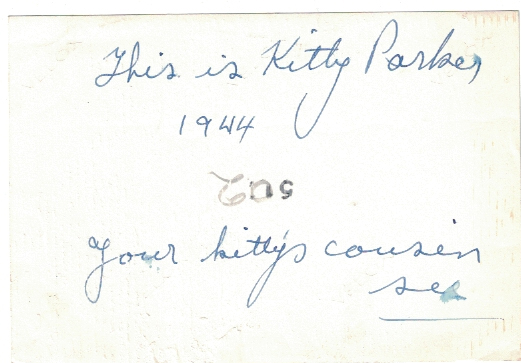 This is Kitty Parker
1944
Your kitty's cousin
see